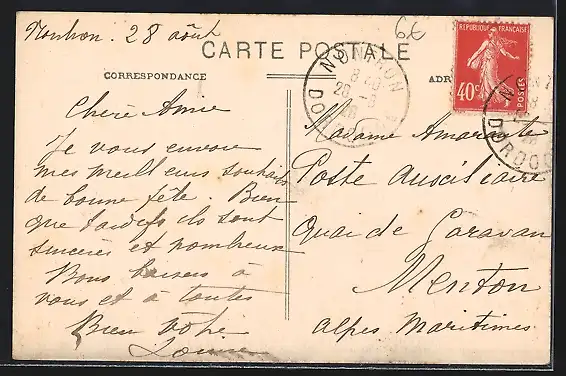 Nontron. 28 août
6€
CARTE POSTALE
CORRESPONDANCE
ADR
NONTRON
8
28 - 8
DOR
REPUBLIQUE FRANÇAISE
40c
POSTES
DORDOG
Chère Amie
Je vous envoie
mes meilleurs souhaits
de bonne fête. Bien
que tardifs ils sont
sincères et nombreux
Bons baisers à
vous et à toutes
Bien vôtre
Louise
Madame Amarante
Poste Auxiliaire
Quai de Garavan
Menton
Alpes Maritimes